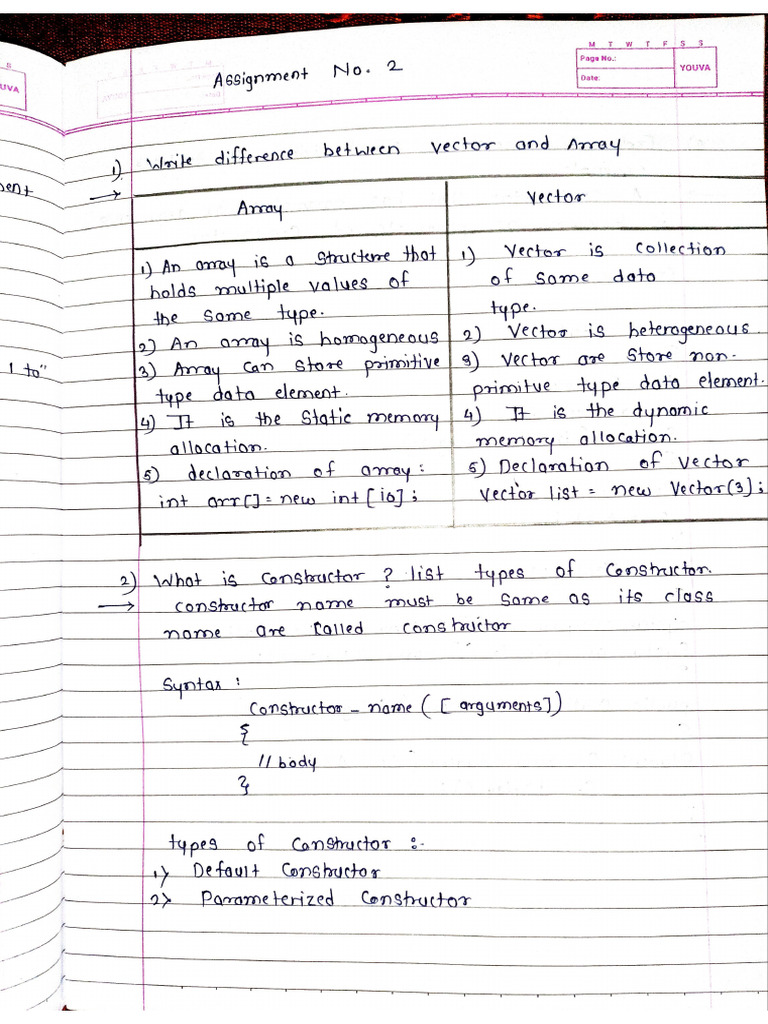 M T W T F S S
Page No.:
Date:
YOUVA
S
UVA
Assignment No. 2
1) Write difference between vector and Array
→
Array
Vector
1) An array is a structure that
holds multiple values of
the same type.
2) An array is homogeneous
3) Array can store primitive
type data element.
4) It is the static memory
allocation.
5) declaration of array:
int arr[]=new int[10];
1) Vector is collection
of same data
type.
2) Vector is heterogeneous.
3) Vector are store non-
primitve type data element.
4) It is the dynamic
memory allocation.
5) Declaration of Vector
Vector list = new Vector(3);
1 to"
2) What is constructor ? list types of constructor.
→ constructor name must be same as its class
name are called constructor
Syntax :
Constructor - name ( [ arguments])
{
// body
}
types of Constructor :-
1) Default Constructor
2) Parameterized Constructor